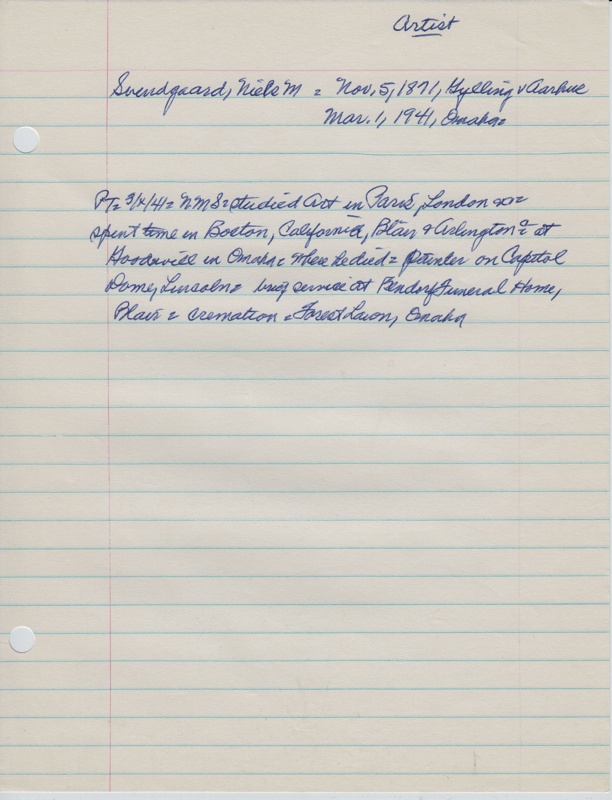 Artist
Svendgaard, Niels M = Nov. 5, 1871, Hylling v Aarhue
Mar. 1, 1941, Omaha=
PT= 3/4/41= NMS= studied Art in Paris, London
spent time in Boston, California, Blair & Arlington = at
Goodwill in Omaha = where he died = painter on Capitol
Dome, Lincoln = service at Funeral Home,
Blair = cremation = Forest Lawn, Omaha